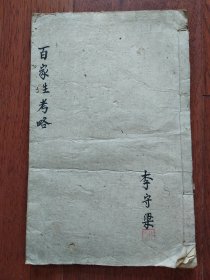 百家姓考略
李守梁